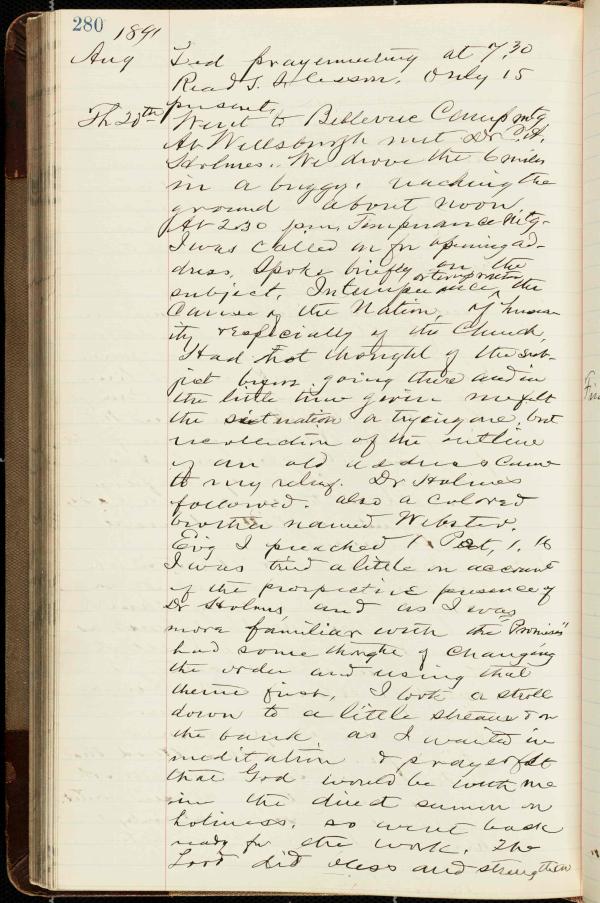 280
1891
Aug Led prayermeeting at 7.30
Read S. S. lesson. Only 15
present.
Th 20th Went to Bellevue Camp mtg
At Wellsburgh met Dr
Holmes. We drove the 6 miles
in a buggy, reaching the
ground about noon.
At 2.30 p.m. Temperance Mtg.
I was called on for opening ad-
dress, Spoke briefly on the
subject, Intemperance, the
Curse of the Nation, of human-
ity & especially of the Church,
Had not thought of the sub-
ject before going there and in
the little time given me felt
the situation a trying one, but
recollection of the outline
of an old address came
to my relief. Dr Holmes
followed. also a colored
brother named Webster.
Ev'g I preached 1 Pet, 1. 16
I was tried a little on account
of the prospective presence of
Dr Holmes, and as I was
more familiar with the "Promises"
had some thought of changing
the order and using that
theme first, I took a stroll
down to a little stream & on
the bank as I waited in
meditation & prayer felt
that God would be with me
in the direct sermon on
holiness. so went back
ready for the work. The
Lord did bless and strengthen